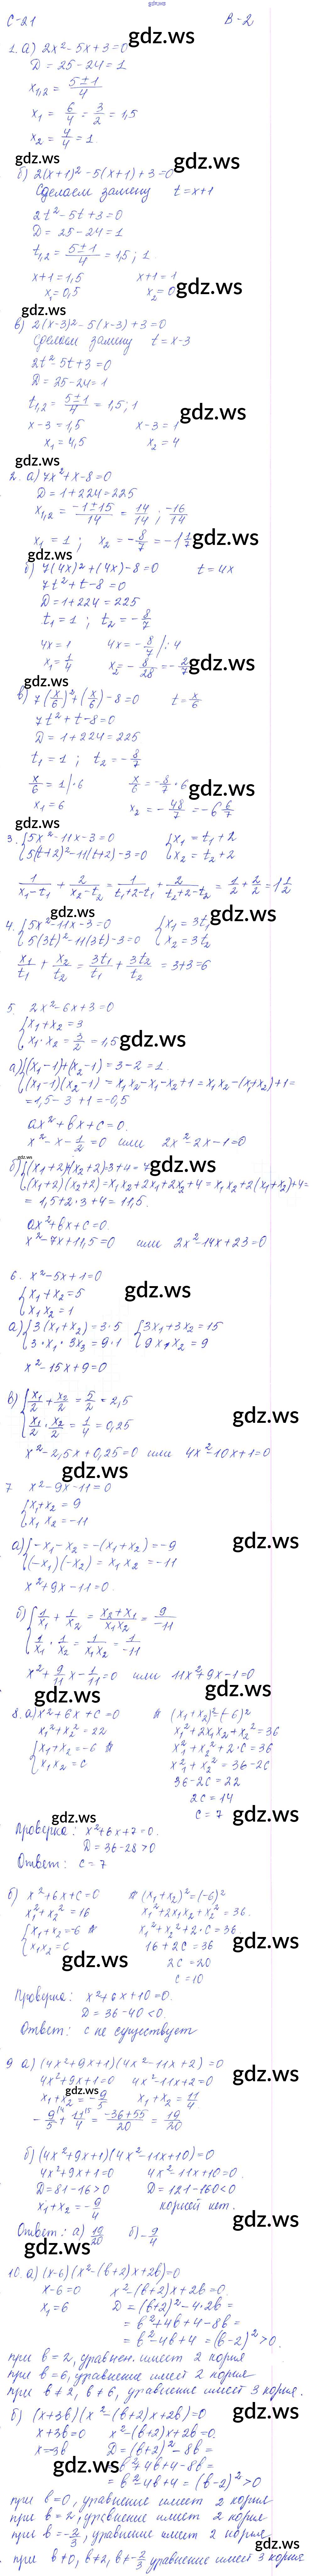 gdz.ws
С-21 В-2
1. а) 2x² - 5x + 3 = 0
gdz.ws
D = 25 - 24 = 1
x₁,₂ = (5±1)/4
x₁ = 6/4 = 3/2 = 1,5
x₂ = 4/4 = 1.
gdz.ws gdz.ws
б) 2(x+1)² - 5(x+1) + 3 = 0
Сделаем замену t = x+1
2t² - 5t + 3 = 0
D = 25 - 24 = 1
t₁,₂ = (5±1)/4 = 1,5; 1
x+1 = 1,5 x+1 = 1
x₁ = 0,5 x₂ = 0
gdz.ws
gdz.ws
в) 2(x-3)² - 5(x-3) + 3 = 0
Сделаем замену t = x-3
2t² - 5t + 3 = 0
D = 25 - 24 = 1
t₁,₂ = (5±1)/4 = 1,5; 1
gdz.ws
x-3 = 1,5 x-3 = 1
x₁ = 4,5 x₂ = 4
gdz.ws
2. а) 7x² + x - 8 = 0
D = 1 + 224 = 225
x₁,₂ = (-1±15)/14 = 14/14; -16/14
x₁ = 1; x₂ = -8/7 = -1 1/7
gdz.ws
gdz.ws
б) 7(4x)² + (4x) - 8 = 0 t = 4x
7t² + t - 8 = 0
D = 1 + 224 = 225
t₁ = 1; t₂ = -8/7
4x = 1 4x = -8/7 |:4
x₁ = 1/4 x₂ = -8/28 = -2/7
gdz.ws
gdz.ws
в) 7(x/6)² + (x/6) - 8 = 0 t = x/6
7t² + t - 8 = 0
D = 1 + 224 = 225
t₁ = 1; t₂ = -8/7
x/6 = 1 |·6 x/6 = -8/7 ·6
gdz.ws
x₁ = 6 x₂ = -48/7 = -6 6/7
gdz.ws
3. {5x² - 11x - 3 = 0 {x₁ = t₁ + 2
{5(t+2)² - 11(t+2) - 3 = 0 {x₂ = t₂ + 2
1/(x₁-t₁) + 2/(x₂-t₂) = 1/(t₁+2-t₁) + 2/(t₂+2-t₂) = 1/2 + 2/2 = 1 1/2
gdz.ws
4. {5x² - 11x - 3 = 0 {x₁ = 3t₁
{5(3t)² - 11(3t) - 3 = 0 {x₂ = 3t₂
x₁/t₁ + x₂/t₂ = 3t₁/t₁ + 3t₂/t₂ = 3+3 = 6
5. 2x² - 6x + 3 = 0
{x₁ + x₂ = 3
{x₁·x₂ = 3/2 = 1,5
gdz.ws
а) {(x₁-1)+(x₂-1) = 3-2 = 1.
{(x₁-1)(x₂-1) = x₁x₂ - x₁ - x₂ + 1 = x₁x₂ - (x₁+x₂) + 1 =
= 1,5 - 3 + 1 = -0,5
ax² + bx + c = 0.
x² - x - 1/2 = 0 или 2x² - 2x - 1 = 0
gdz.ws
б) {(x₁+2)+(x₂+2) = 3+4 = 7
gdz.ws
{(x₁+2)(x₂+2) = x₁x₂ + 2x₁ + 2x₂ + 4 = x₁x₂ + 2(x₁+x₂) + 4 =
= 1,5 + 2·3 + 4 = 11,5.
ax² + bx + c = 0.
x² - 7x + 11,5 = 0 или 2x² - 14x + 23 = 0
6. x² - 5x + 1 = 0
{x₁ + x₂ = 5
{x₁x₂ = 1
gdz.ws
а) {3(x₁+x₂) = 3·5 {3x₁ + 3x₂ = 15
{3·x₁·3x₂ = 9·1 {9x₁x₂ = 9
x² - 15x + 9 = 0
в) {x₁/2 + x₂/2 = 5/2 = 2,5
gdz.ws
{x₁/2 · x₂/2 = 1/4 = 0,25
x² - 2,5x + 0,25 = 0 или 4x² - 10x + 1 = 0
gdz.ws
7 x² - 9x - 11 = 0
{x₁ + x₂ = 9
{x₁x₂ = -11
gdz.ws
а) {-x₁ - x₂ = -(x₁+x₂) = -9
{(-x₁)(-x₂) = x₁x₂ = -11
x² + 9x - 11 = 0.
б) {1/x₁ + 1/x₂ = (x₂+x₁)/(x₁x₂) = 9/-11
{1/x₁ · 1/x₂ = 1/(x₁x₂) = 1/-11
x² + 9/11 x - 1/11 = 0 или 11x² + 9x - 1 = 0
gdz.ws gdz.ws
8. а) x² + 6x + c = 0 (x₁+x₂)² = (-6)²
x₁² + x₂² = 22 x₁² + 2x₁x₂ + x₂² = 36
{x₁ + x₂ = -6 x₁² + x₂² + 2·c = 36
{x₁x₂ = c x₁² + x₂² = 36 - 2c
36 - 2c = 22
2c = 14
c = 7
gdz.ws
gdz.ws
Проверка: x² + 6x + 7 = 0.
D = 36 - 28 > 0
Ответ: c = 7
б) x² + 6x + c = 0 (x₁+x₂)² = (-6)²
x₁² + x₂² = 16 x₁² + 2x₁x₂ + x₂² = 36.
{x₁ + x₂ = -6 x₁² + x₂² + 2·c = 36
{x₁x₂ = c 16 + 2c = 36
gdz.ws
gdz.ws
2c = 20
c = 10
Проверка: x² + 6x + 10 = 0.
D = 36 - 40 < 0.
Ответ: c не существует
9 а) (4x² + 9x + 1)(4x² - 11x + 2) = 0
4x² + 9x + 1 = 0 4x² - 11x + 2 = 0
gdz.ws
gdz.ws
x₁ + x₂ = -9/5 x₁ + x₂ = 11/4
-9/5 + 11/4 = (-36+55)/20 = 19/20
б) (4x² + 9x + 1)(4x² - 11x + 10) = 0
4x² + 9x + 1 = 0 4x² - 11x + 10 = 0.
D = 81 - 16 > 0 D = 121 - 160 < 0
x₁ + x₂ = -9/4 корней нет.
gdz.ws
Ответ: а) 19/20 б) -9/4
gdz.ws
10. а) (x-6)(x² - (b+2)x + 2b) = 0
x - 6 = 0 x² - (b+2)x + 2b = 0.
x₁ = 6 D = (b+2)² - 4·2b =
gdz.ws
= b² + 4b + 4 - 8b =
= b² - 4b + 4 = (b-2)² > 0.
при b = 2, уравнен. имеет 2 корня
при b = 6, уравнение имеет 2 корня
при b ≠ 2, b ≠ 6, уравнение имеет 3 корня.
б) (x+3b)(x² - (b+2)x + 2b) = 0
gdz.ws
x + 3b = 0 x² - (b+2)x + 2b = 0.
x = -3b D = (b+2)² - 8b =
gdz.ws
= b² + 4b + 4 - 8b =
= b² - 4b + 4 = (b-2)² > 0
при b = 0, уравнение имеет 2 корня
при b = 2, уравнение имеет 2 корня
при b = -2/3, уравнение имеет 2 корня
gdz.ws
при b ≠ 0, b ≠ 2, b ≠ -2/3 уравнение имеет 3 корня